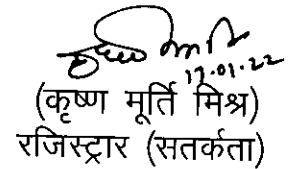 17.01.22
(कृष्ण मूर्ति मिश्र)
रजिस्ट्रार (सतर्कता)